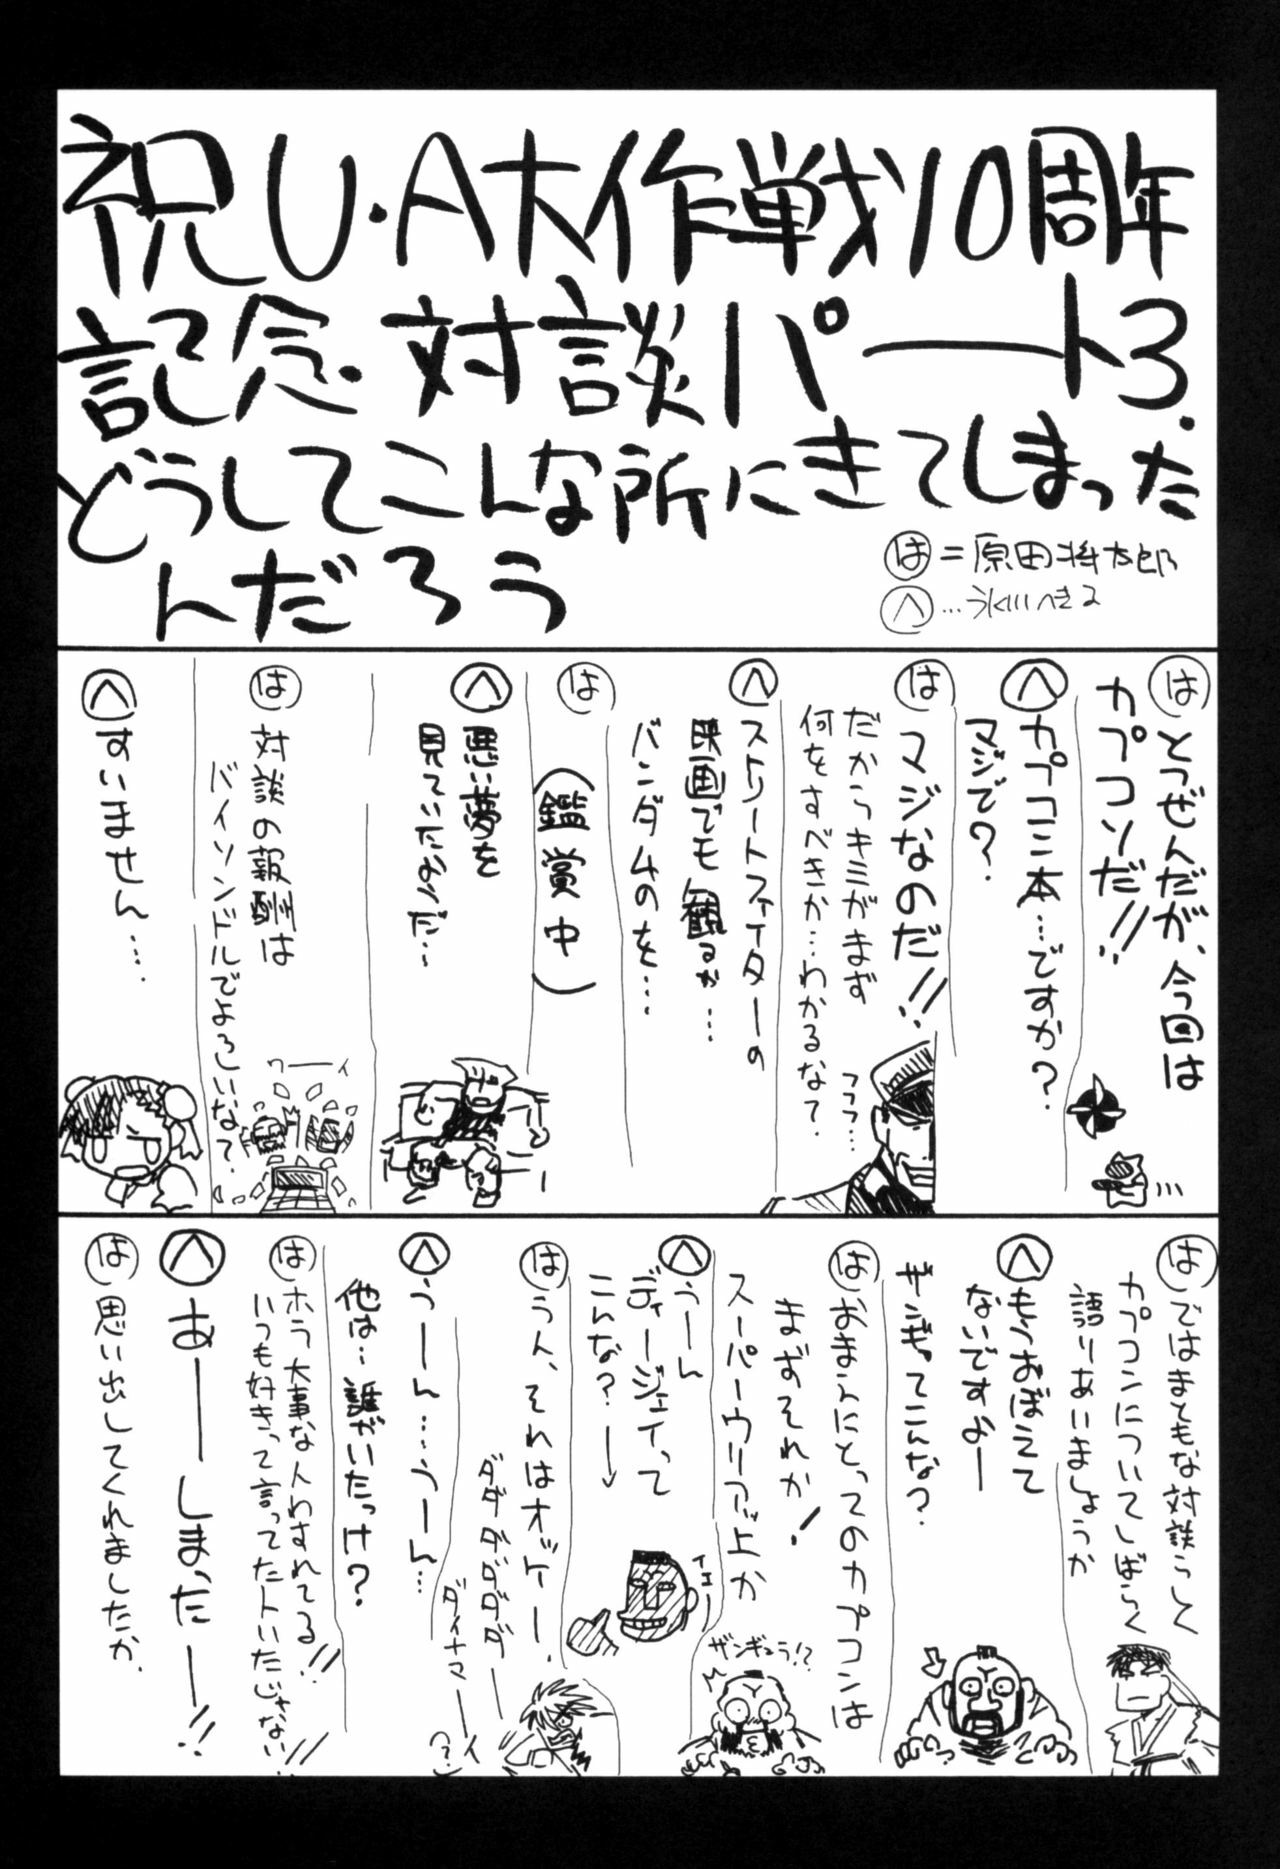 祝U・A大作戦10周年
記念・対談パート3.
どうしてこんな所にきてしまった
んだろう
は=原田将太郎
へ…氷川へきる
はとつぜんだが、今回は
カプコンだ!!
へカプコン本…ですか?
マジで?
はマジなのだ!!
だからキミがまず
何をすべきか…わかるな?
フフフ…
へストリートファイターの
映画でも観るか…
バンダムのを…
は(鑑賞中)
へ悪い夢を
見ていたようだ…
は対談の報酬は
バイソンドルでよろしいな?
ワーーイ
へすいません…
はではまともな対談らしく
カプコンについてしばらく
語りあいましょうか
へもうおぼえて
ないですよー
ザンギってこんな?
はおまえにとってのカプコンは
まずそれか!
スーパーウリアッ上か
ザンギュラ!?
へうーん
ディージェイって
こんな?→
イエー
はうん、それはオッケー.
ダダダダダダー
ダイナマーイ
(?)
へうーん…うーん…
他は…誰がいたっけ?
はホラ大事な人わすれてる!!
いつも好きって言ってた人いたじゃない!!
へあーーしまったーー!!
は思い出してくれましたか.